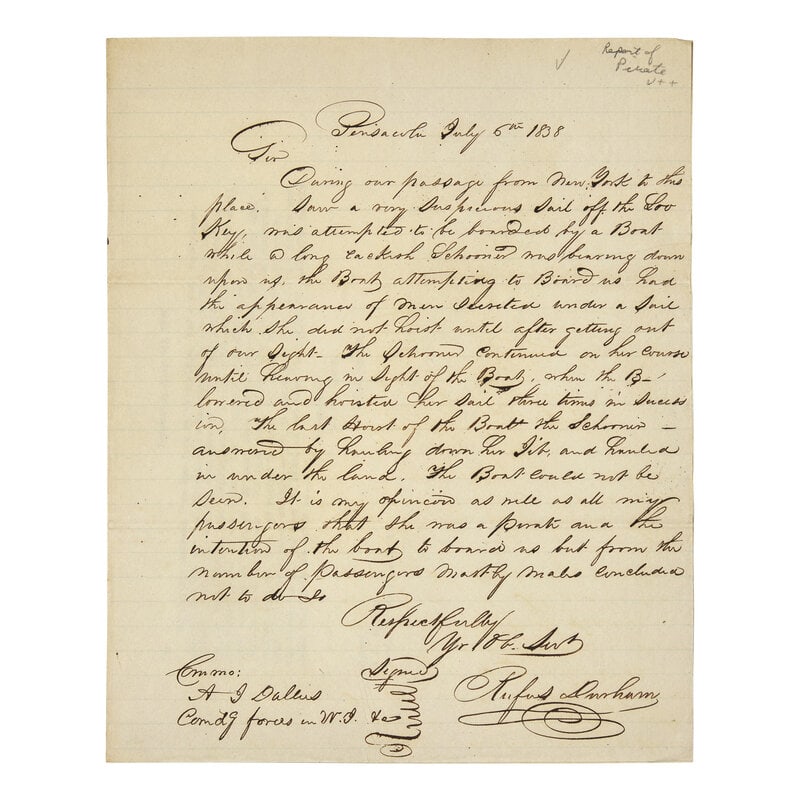 Report of
Pirate
✓ + +
Pensacola July 6th 1838
Sir
During our passage from New York to this
place. Saw a very suspicious sail off the Loo
Key, was attempted to be boarded by a Boat
while a long rackish Schooner was bearing down
upon us, the Boat attempting to Board us had
the appearance of Men secreted under a sail
which she did not hoist until after getting out
of our sight - The Schooner continued on her course
until heaving in sight of the Boat, when the B-
lowered and hoisted her sail three times in sucess
ion, The last Hoist of the Boat the Schooner -
answered by hauling down her Jib, and hauled
in under the land. The Boat could not be
seen. It is my opinion as well as all my
passengers that she was a pirate and the
intention of the boat to board us but from the
number of passengers mostly males concluded
not to do so
Respectfully
Yr Ob. Servt
Signed
Rufus Durham
Commo:
A J Dallas
Comdg forces in W. I. &c